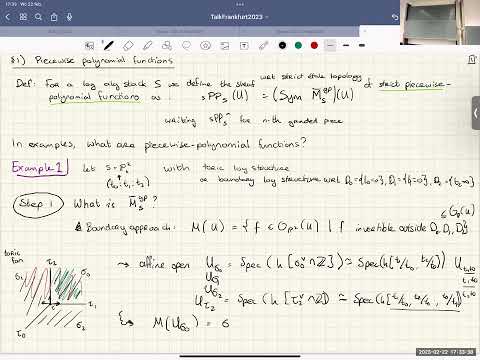 17:39 Wt 22 feb.
TalkFrankfurt2023
§1) Piecewise polynomial functions
Def: For a log alg stack S we define the sheaf wrt strict étale topology of strict piecewise-
polynomial functions as: sPP_S(U) = (Sym M̄_S^gp)(U)
writing sPP_S^n for n-th graded piece
In examples, what are piecewise-polynomial functions?
Example 1 Let S = P²  with toric log structure
(t₀:t₁,t₂) or boundary log structure wrt D₀={t₀=0}, D₁={t₁=0}, D₂={t₂=0}
Step 1 What is M̄_S^gp?
Boundary approach: M(U) = { f ∈ O_P²(U) | f invertible outside D₀, D₁, D₂}
toric fan
→ affine open U_σ₀ = Spec(k[σ₀^∨ ∩ Z]) ≃ Spec(k[t₁/t₀, t₂/t₀])
U_σ₁
U_τ₂ = Spec(k[τ₂^∨ ∩ Z]) ≃
τ₂ σ₁ σ₀ τ₁ τ₀ σ₂
M(U_σ₀) = 6
2023-02-22 17:33:38